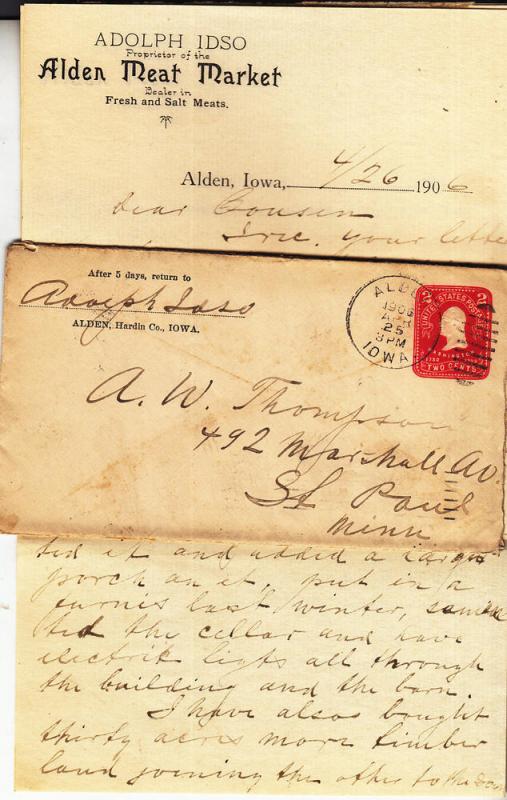 ADOLPH IDSO
Proprietor of the
Alden Meat Market
Dealer in
Fresh and Salt Meats.
Alden, Iowa, 4/26 1906
Dear Cousen
your lette
After 5 days, return to
Adolph Idso
ALDEN, Hardin Co., IOWA.
ALDE
1906
APR
25
3 PM
IOWA
UNITED STATES POST
WASHINGTON
TWO CENTS
A. W. Thompson
492 Marshall Av.
St Paul
Minn
ted it and added a large
porch on it, put in a
furnis last winter, semen
ted the cellar and have
electrik ligts all through
the building and the barn.
I have alsos bought
thirty acres more timber
land joening the other to the